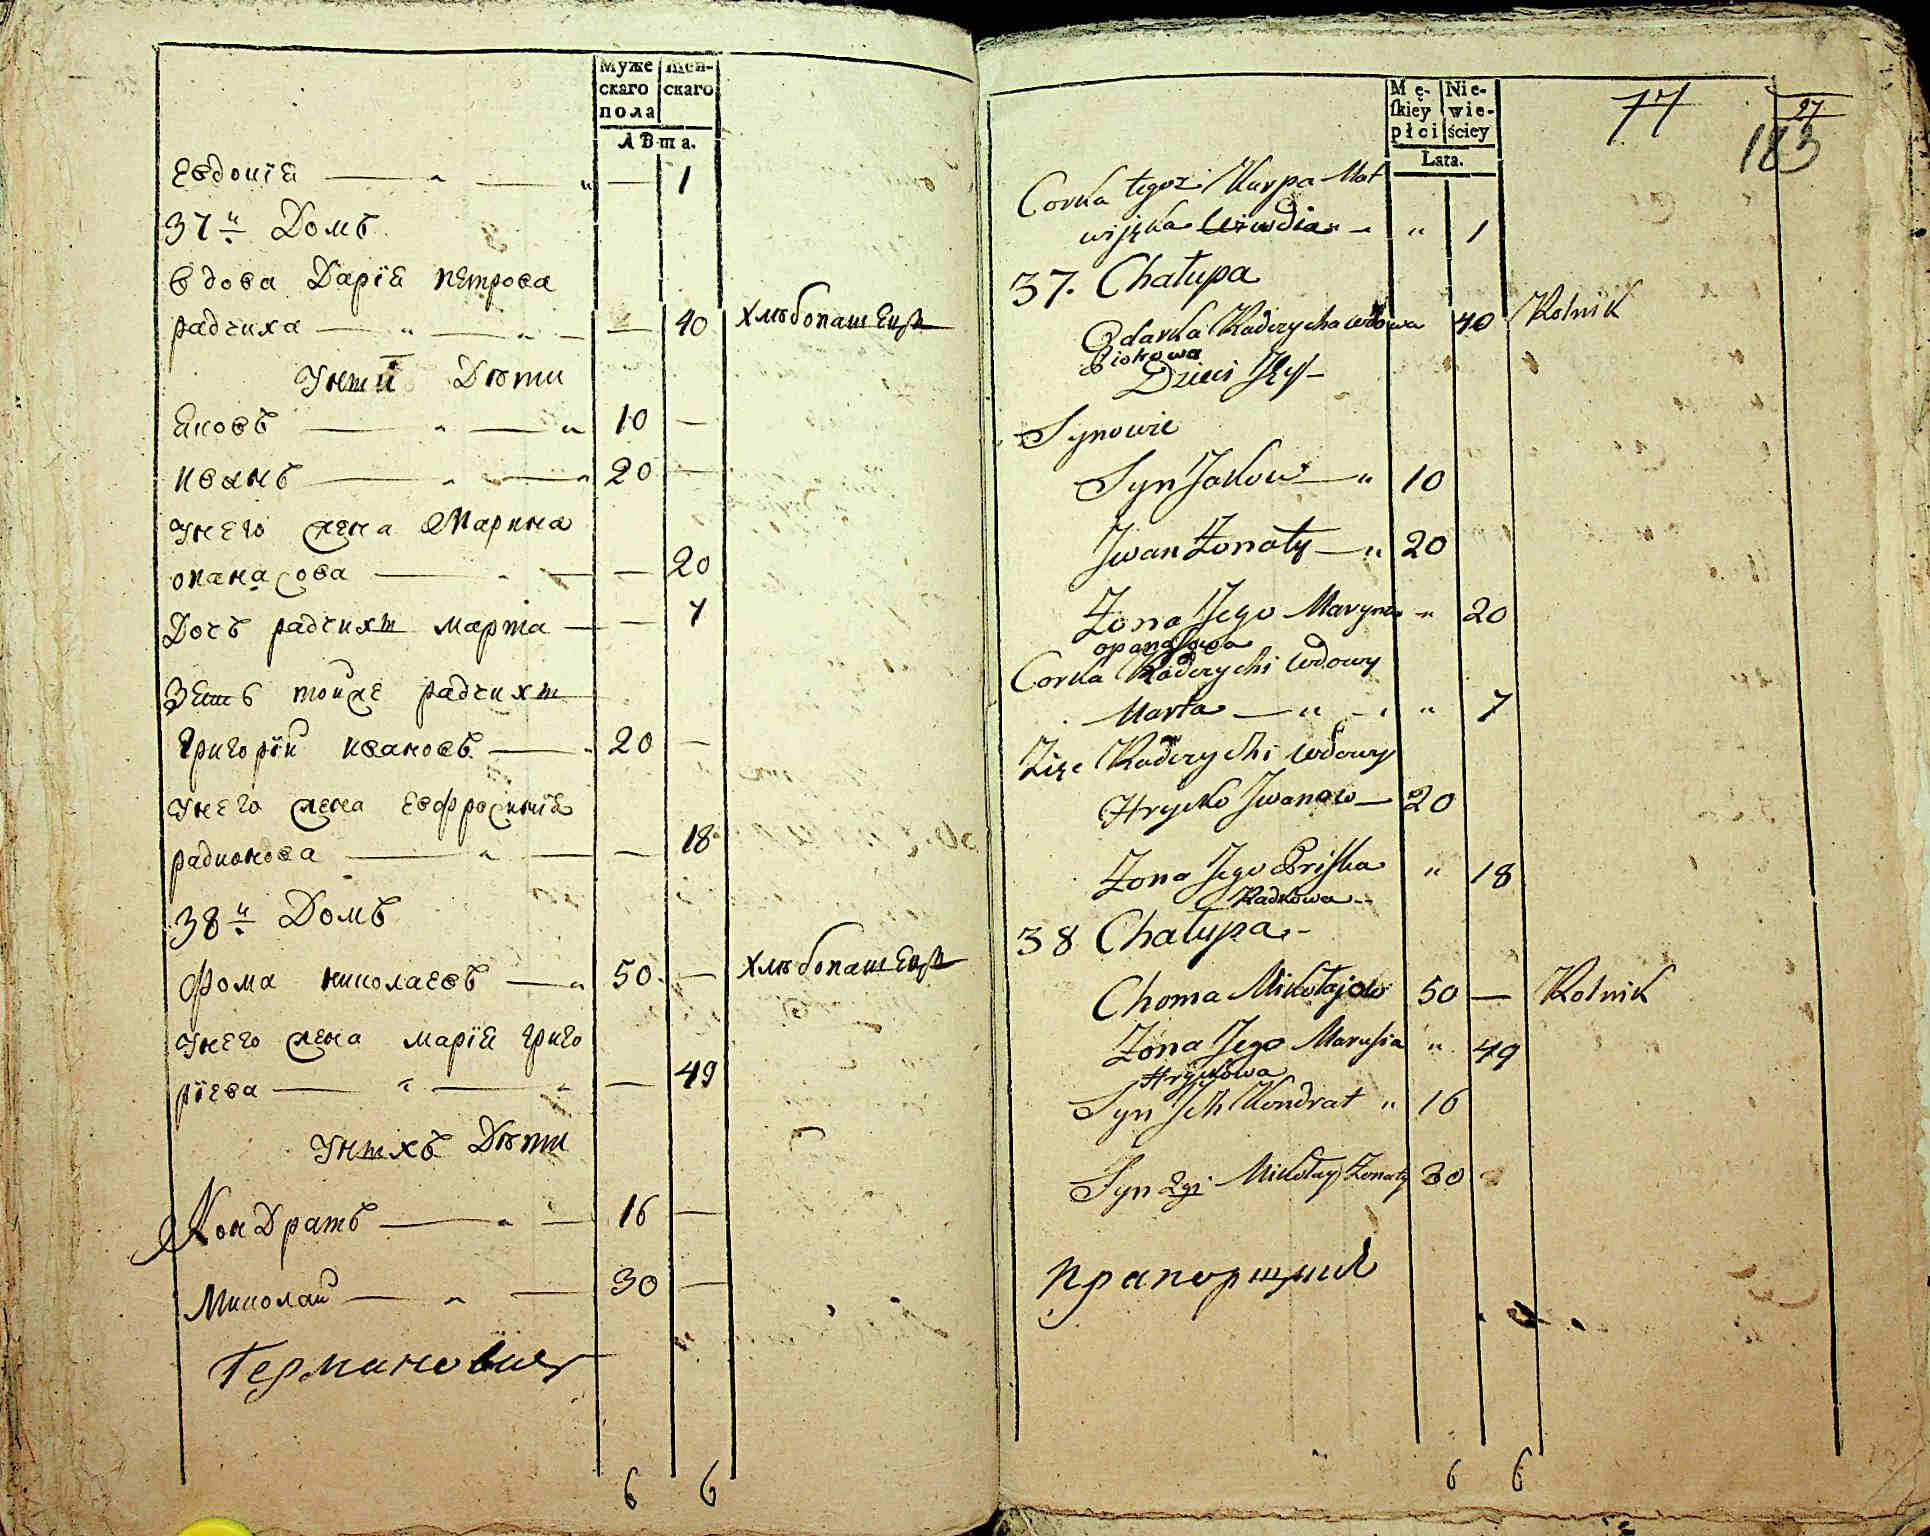 Муже
скаго
пола
Жен-
скаго
ЛѢта.
Евдокїя — „ — „ — 1
37й Домъ
вдова Дарїя петрова
радчиха — „ — „ — — 40 хлѣбопашецъ
Унея Дѣти
Яковъ — „ — „ 10 —
иванъ — „ — „ 20 —
Унего жена Марина
опанасова — „ — — 20
Дочъ радчихи марта — — 7
Зеть тойже радчихи
Григорїй ивановъ — „ 20 —
Унего жена евфросинїя
радионова — „ — — 18
38й Домъ
фома николаевъ — „ 50 — хлѣбопашецъ
Унего жена марїя григо
рїева — „ — „ — 49
Унихъ Дѣти
КонДратъ — „ — 16 —
Миколай — „ — 30 —
Германовичъ
6 6
Mę-
skiey
płci
Nie-
wie-
ściey
Lata.
77
97
183
Corka tegoż Karpa Mat
wijęka Uiwdia — „ 1
37. Chałupa
Odarka Radczycha wdowa 40 Rolnik
Piotrowa
Dzieci Jey
Synowie
Syn Jakow — „ 10
Jwan Żonaty — „ 20
Żona Jego Maryna „ 20
opanasowa
Corka Radczychi wdowy
Marta — „ — „ „ 7
Zięć Radczychi wdowy
Hrycko Jwanow — 20
Żona Jego Priska „ 18
Radkowa
38 Chałupa
Choma Mikołajow 50 — Rolnik
Żona Jego Marusia „ 49
Hryckowa
Syn Jch Kondrat „ 16
Syn 2gi Mikołay Żonaty 30
прапорщик
6 6